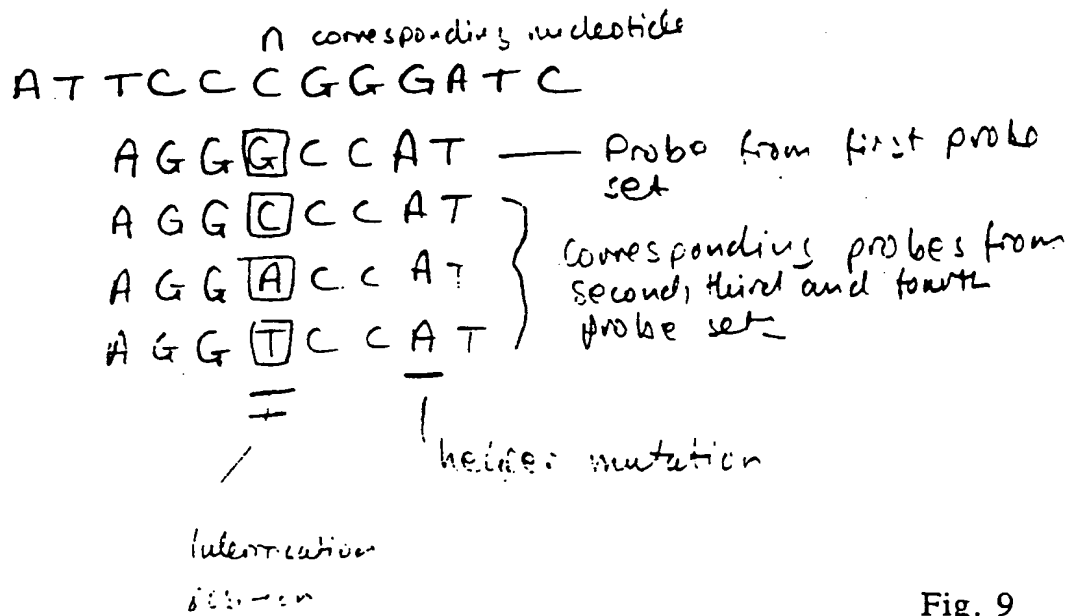 n corresponding nucleotide
A T T C C C G G G A T C
A G G G C C A T — Probe from first probe
set
A G G C C C A T
A G G A C C A T
A G G T C C A T
Corresponding probes from
second, third and fourth
probe set
helper mutation
Fig. 9